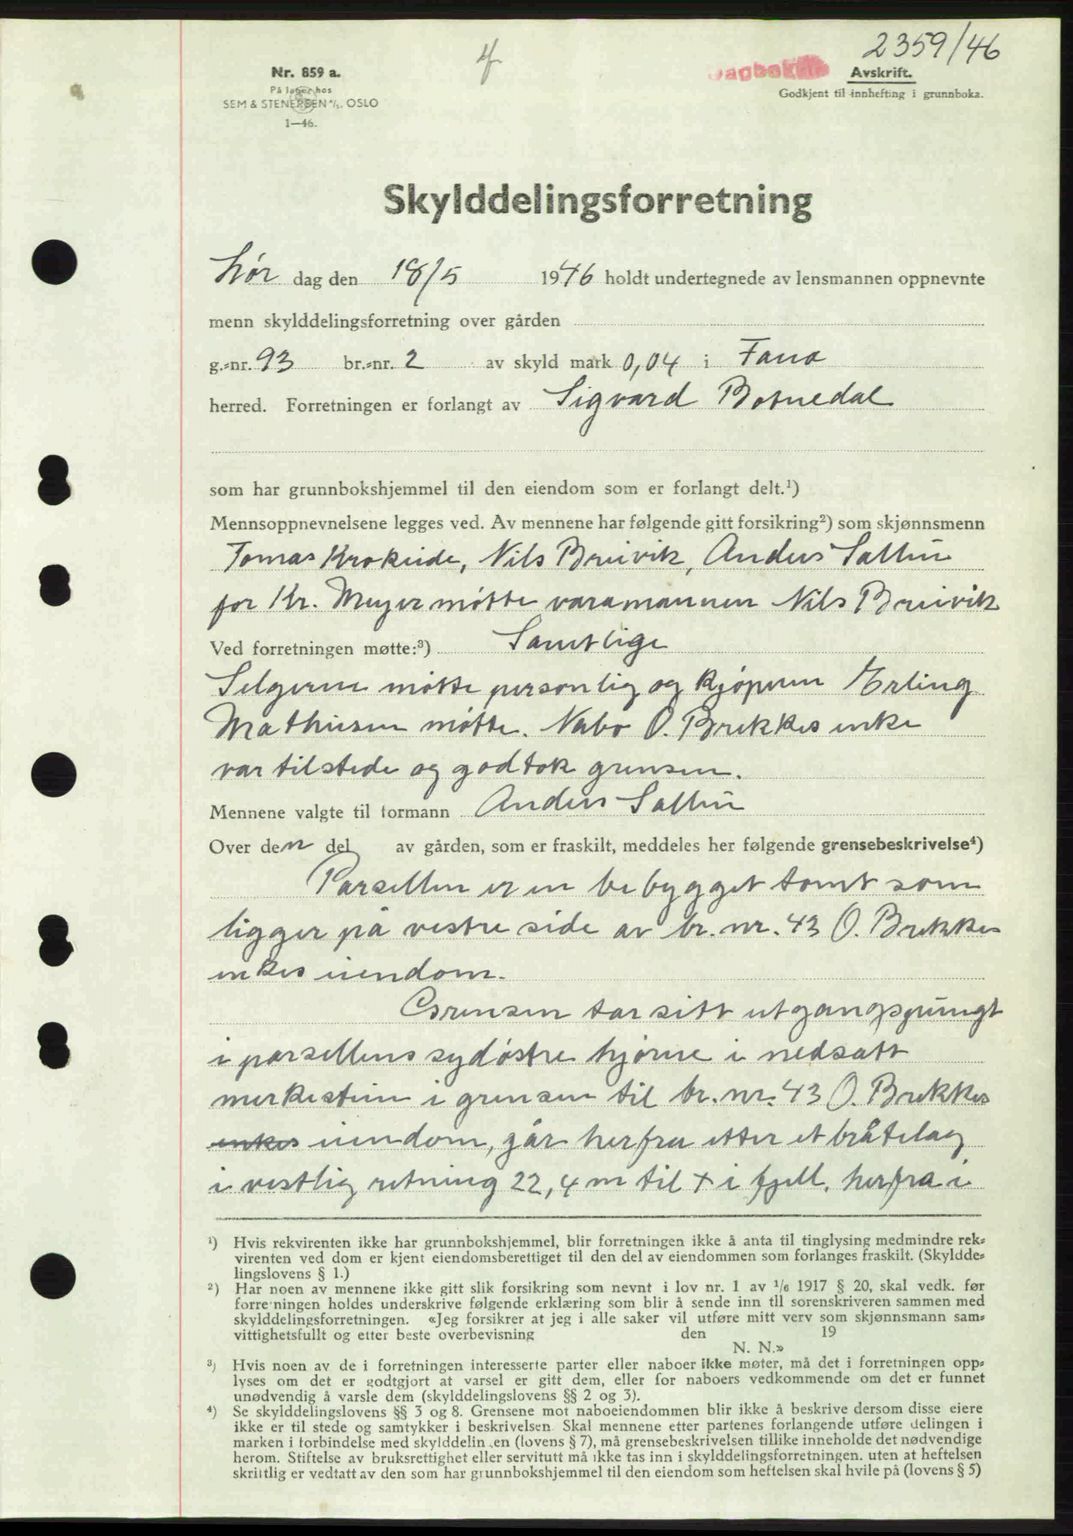 2359/46
4
Dagbok
Nr. 859 a.
På lager hos
SEM & STENERSEN A/S, OSLO
1—46.
Avskrift.
Godkjent til innhefting i grunnboka.
Skylddelingsforretning
Lør dag den 18/5 1946 holdt undertegnede av lensmannen oppnevnte
menn skylddelingsforretning over gården
g.-nr. 93 br.-nr. 2 av skyld mark 0,04 i Fana
herred. Forretningen er forlangt av Sigvard Botnedal
som har grunnbokshjemmel til den eiendom som er forlangt delt.¹)
Mennsoppnevnelsene legges ved. Av mennene har følgende gitt forsikring²) som skjønnsmenn
Tomas Krokeide, Nils Breivik, Anders
for Kr. Meyer møtte varamannen Nils Breivik
Ved forretningen møtte:³) Samtlige
Selgeren møtte personlig og kjøperen Erling
Mathiesen møtte. Nabo O. Brekkes enke
var tilstede og godtok grensen.
Mennene valgte til formann Anders
Over den del av gården, som er fraskilt, meddeles her følgende grensebeskrivelse⁴)
Parsellen er en bebygget tomt som
ligger på vestre side av br. nr. 43 O. Brekkes
enkes eiendom.
Grensen tar sitt utgangspungt
i parsellens sydøstre hjørne i nedsatt
merkestein i grensen til br. nr. 43 O. Brekkes
enkes eiendom, går herfra etter et båtelag
i vestlig retning 22,4 m til + i fjell, herfra i
¹) Hvis rekvirenten ikke har grunnbokshjemmel, blir forretningen ikke å anta til tinglysing medmindre rek-
virenten ved dom er kjent eiendomsberettiget til den del av eiendommen som forlanges fraskilt. (Skyldde-
lingslovens § 1.)
²) Har noen av mennene ikke gitt slik forsikring som nevnt i lov nr. 1 av 1/6 1917 § 20, skal vedk. før
forretningen holdes underskrive følgende erklæring som blir å sende inn til sorenskriveren sammen med
skylddelingsforretningen. «Jeg forsikrer at jeg i alle saker vil utføre mitt verv som skjønnsmann sam-
vittighetsfullt og etter beste overbevisning den 19
N. N.»
³) Hvis noen av de i forretningen interesserte parter eller naboer ikke møter, må det i forretningen opp-
lyses om det er godtgjort at varsel er gitt dem, eller for naboers vedkommende om det er funnet
unødvendig å varsle dem (skylddelingslovens §§ 2 og 3).
⁴) Se skylddelingslovens §§ 3 og 8. Grensene mot naboeiendommen blir ikke å beskrive dersom disse eiere
ikke er til stede og samtykker i beskrivelsen. Skal mennene etter partenes forlangende utføre delingen i
marken i forbindelse med skylddelingen (lovens § 7), må grensebeskrivelsen tillike inneholde det nødvendige
herom. Stiftelse av bruksrettighet eller servitutt må ikke tas inn i skylddelingsforretningen. uten at heftelsen
skriftlig er vedtatt av den som har grunnbokshjemmel til den eiendom som heftelsen skal hvile på (lovens § 5)